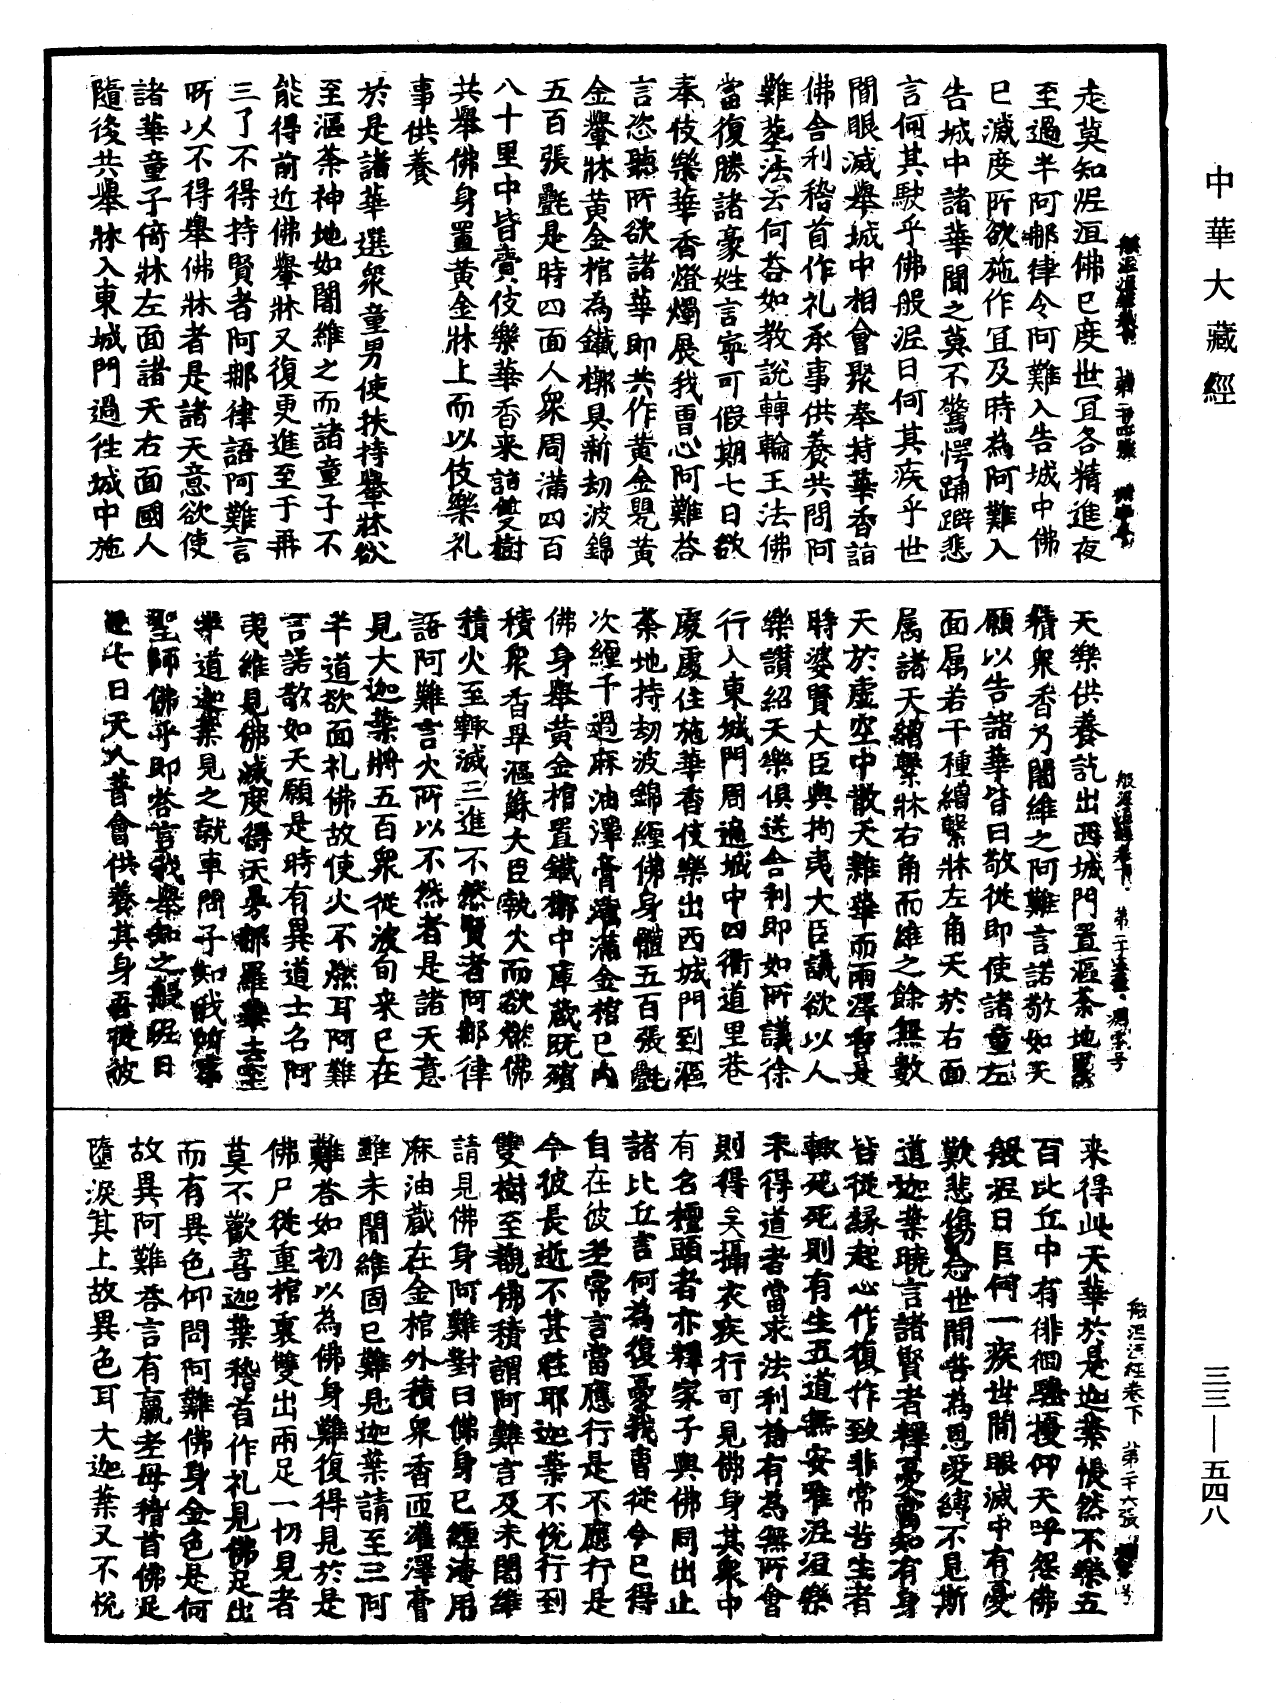 中華大藏經
走莫知泥洹佛已度世宜各精進夜
至過半阿那律令阿難入告城中佛
已滅度所欲施作宜及時為阿難入
告城中諸華聞之莫不驚愕踊躃悲
言何其駛乎佛般泥曰何其疾乎世
間眼滅舉城中相會聚奉持華香詣
佛舍利稽首作礼承事供養共問阿
難塟法云何荅如教說轉輪王法佛
當復勝諸豪姓言寧可假期七日欲
奉伎樂華香燈燭展我曹心阿難荅
言恣聽所欲諸華即共作黃金甖黃
金轝牀黃金棺為鐵槨具新劫波錦
五百張㲲是時四面人眾周滿四百
八十里中皆賫伎樂華香来詣雙樹
共舉佛身置黃金牀上而以伎樂礼
事供養
於是諸華選眾童男使扶持轝牀欲
至漚茶神地如闍維之而諸童子不
能得前近佛轝牀又復更進至于再
三了不得持賢者阿那律語阿難言
所以不得舉佛牀者是諸天意欲使
諸華童子倚牀左面諸天右面國人
隨後共轝牀入東城門過徃城中施
般泥洹經卷下 第二十五張
天樂供養訖出西城門置漚茶地
積眾香乃闍維之阿難言諾敬如天
願以告諸華皆曰敬從即使諸童左
面属若干種繒繫牀左角天於右面
属諸天繒繫牀右角而維之餘無數
天於虛空中散天雜華而雨澤香是
時婆賢大臣與拘夷大臣議欲以人
樂讃紹天樂俱送舍利即如所議徐
行入東城門周遍城中四衢道里巷
處處住施華香伎樂出西城門到漚
茶地持劫波錦纏佛身體五百張㲲
次纏千過麻油澤膏灌滿金棺已內
佛身舉黃金棺置鐵槨中庫蔵既殯
積眾香畢漚蘇大臣執火而欲燃佛
積火至輙滅三進不燃賢者阿那律
語阿難言火所以不然者是諸天意
見大迦葉將五百眾從波旬来已在
半道欲面礼佛故使火不燃耳阿難
言諾敬如天願是時有異道士名阿
夷維見佛滅度得天曼那羅華去至
半道迦葉見之就車問子知我所事
聖師佛乎即荅言我舉知之般泥曰
已七日天人普會供養其身吾從彼
般泥洹經卷下 第二十六張
来得此天華於是迦葉悵然不樂五
百比丘中有徘徊騷擾仰天呼怨佛
般泥曰巨何一疾世間眼滅中有憂
歎悲傷念世間苦為恩愛縛不見斯
道迦葉曉言諸賢者釋憂當知有身
皆從緣起心作復作致非常苦生者
輒死死則有生五道無安唯泥洹樂
未得道者當求法利捨有為無所會
則得矣攝衣疾行可見佛身其眾中
有名檀頭者亦釋家子與佛同出止
諸比丘言何為復憂我曹從今已得
自在彼老常言當應行是不應行是
今彼長逝不甚往耶迦葉不悅行到
雙樹至觀佛積謂阿難言及未闍維
請見佛身阿難對曰佛身已纏淹用
麻油蔵在金棺外積眾香匝灌澤膏
雖未闍維固已難見迦葉請至三阿
難荅如初以為佛身難復得見於是
佛尸從重棺裏雙出兩足一切見者
莫不歡喜迦葉稽首作礼見佛足出
而有異色仰問阿難佛身金色是何
故異阿難荅言有羸老母稽首佛足
墮淚其上故異色耳大迦葉又不悅
三三—五四八